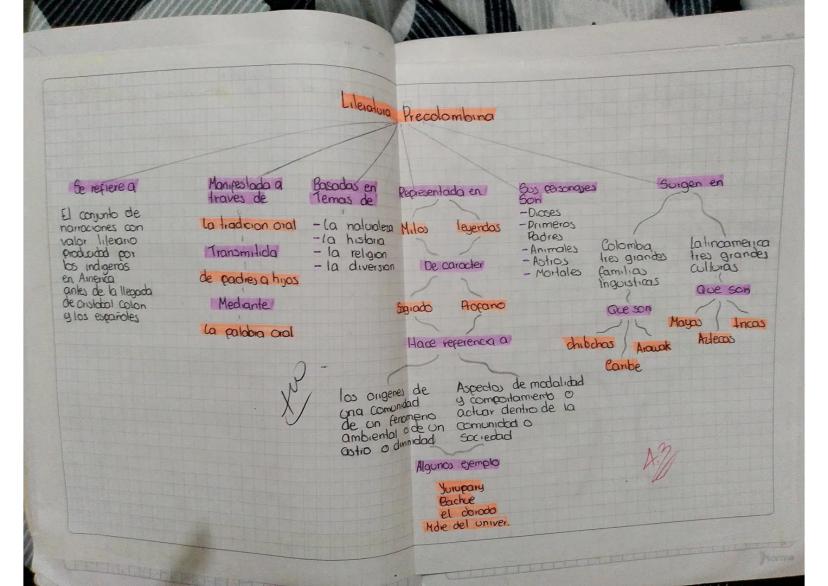 Literatura Precolombina
Se refiere a
El conjunto de
narraciones con
valor literario
producidad por
los indigenas
en America
antes de la llegada
de cristobal colon
y los españoles
Manifestada a
traves de
La tradicion oral
Transmitida
de padres a hijos
Mediante
La palabra oral
Basadas en
Temas de
- La naturaleza
- la historia
- la religion
- la diversion
Representada en
Mitos
leyendas
De caracter
Sagrado
Profano
Hace referencia a
los origenes de
una comunidad
de un fenomeno
ambiental o de un
astro o divinidad
Aspectos de modalidad
y comportamiento o
actuar dentro de la
comunidad o
sociedad
Algunos ejemplo
Yurupary
Bachue
el dorado
Mdie del univer.
Sus personajes
son
- Dioses
- Primeros
Padres
- Animales
- Astros
- Mortales
Surgen en
Colombia
tres grandes
familias
linguisticas
Que son
chibchas
Caribe
Arawak
Latinoamerica
tres grandes
culturas
Que son
Mayas
Aztecas
Incas
4.3
norma